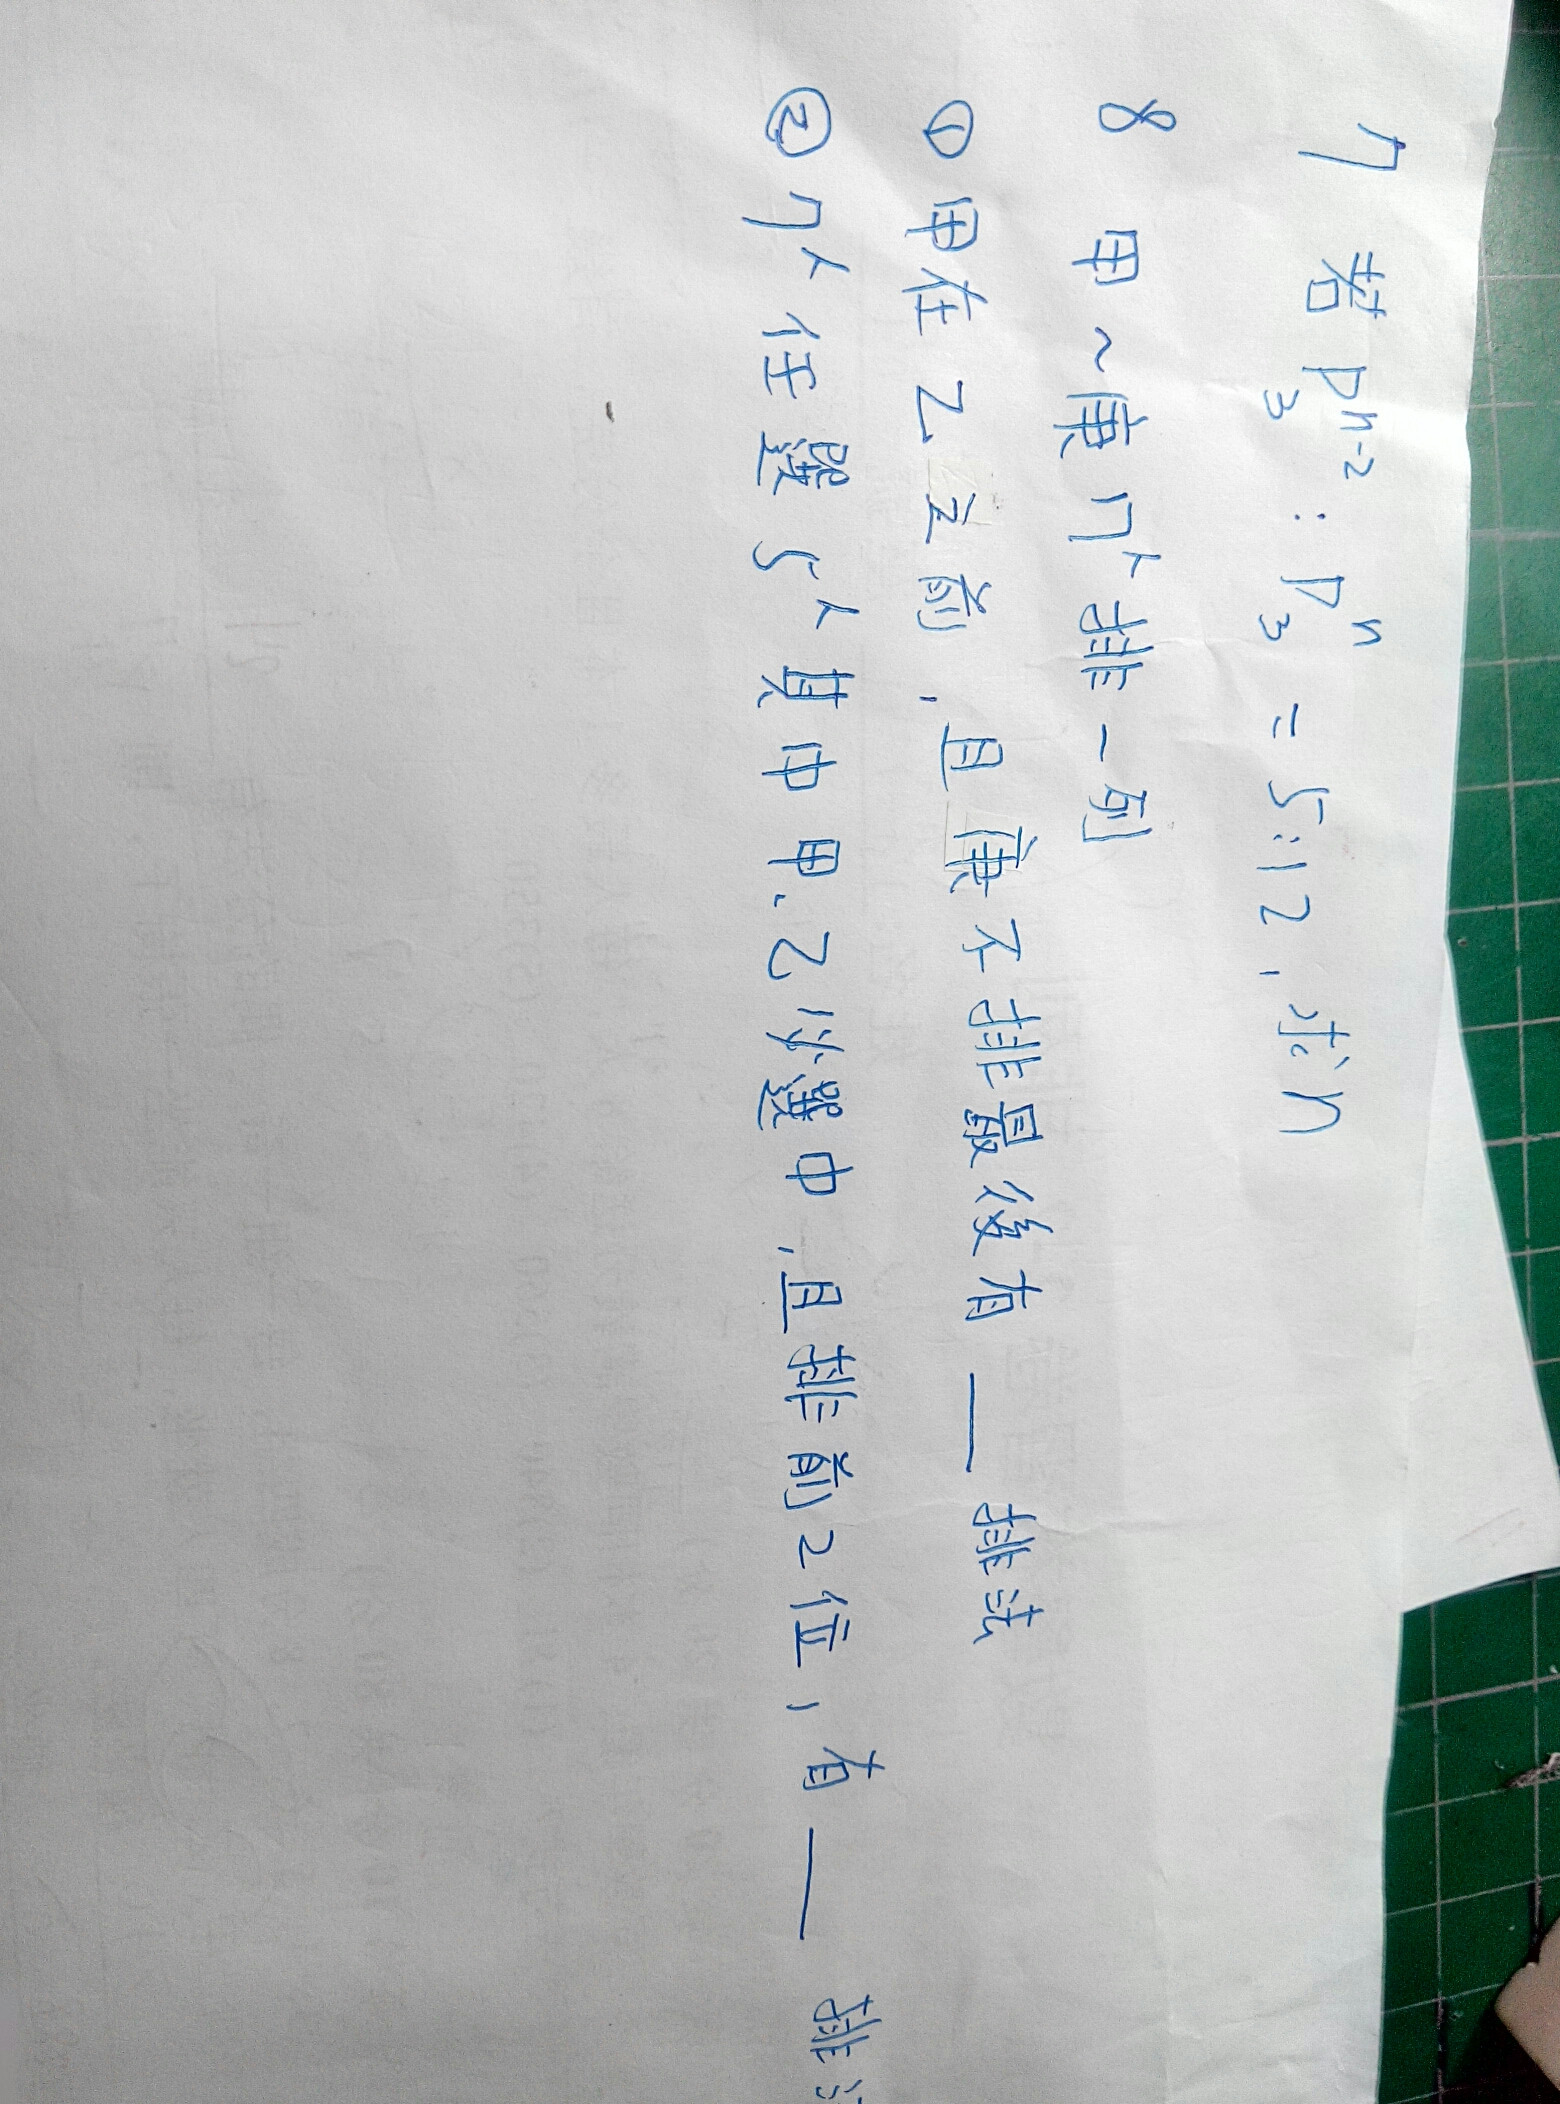 7 若 P₃ⁿ⁻² : P₃ⁿ = 5:12, 求n
8 甲~庚 7人排一列
① 甲在乙之前,且庚不排最後有 __ 排法
② 7人任選5人其中甲、乙必選中,且排前2位,有 __ 排